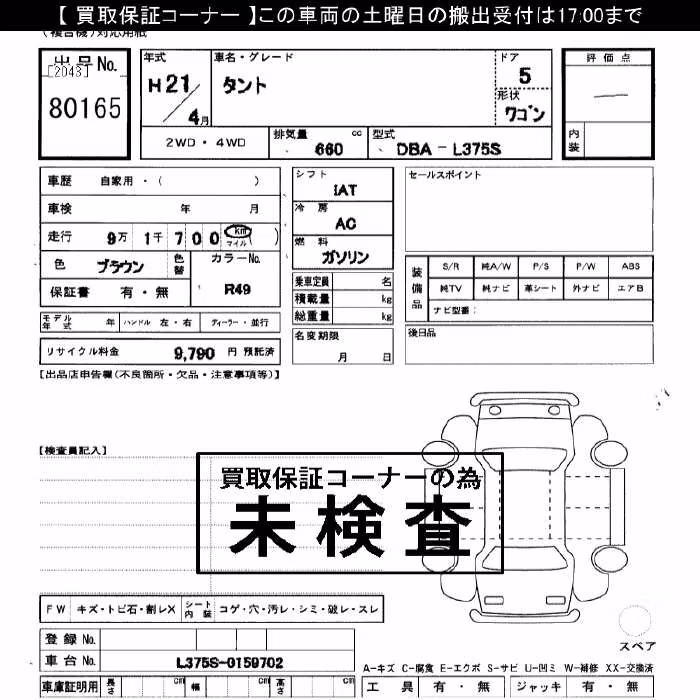 【 買取保証コーナー 】この車両の土曜日の搬出受付は17:00まで
(複合機)対応用紙
出品No.
[2043]
80165
年式
H21/4月
車名・グレード
タント
ドア
5
形状
ワゴン
評価点
内装
2WD・4WD
排気量 660 cc
型式 DBA-L375S
車歴 自家用・( )
車検 年 月
走行 9万 1千 7 0 0 km マイル ( )
色 ブラウン 色替
カラーNo.
R49
保証書 有・無
シフト
IAT
冷房
AC
燃料
ガソリン
乗車定員 名
積載量 kg
総重量 kg
名変期限
月 日
セールスポイント
装備品
S/R 純A/W P/S P/W ABS
純TV 純ナビ 革シート 外ナビ エアB
ナビ型番:
後日品
モデル年式 年 ハンドル 左・右 ディーラー・並行
リサイクル料金 9,790 円 預託済
【出品店申告欄(不良箇所・欠品・注意事項等)】
【検査員記入】
買取保証コーナーの為
未検査
FW キズ・トビ石・割レX シート内装 コゲ・穴・汚レ・シミ・破レ・スレ
登録 No.
車台 No. L375S-0159702
スペア
A-キズ C-腐食 E-エクボ S-サビ U-凹ミ W-補修 XX-交換済
車庫証明用 長さ cm 幅 cm 高さ cm
工具 有・無 ジャッキ 有・無